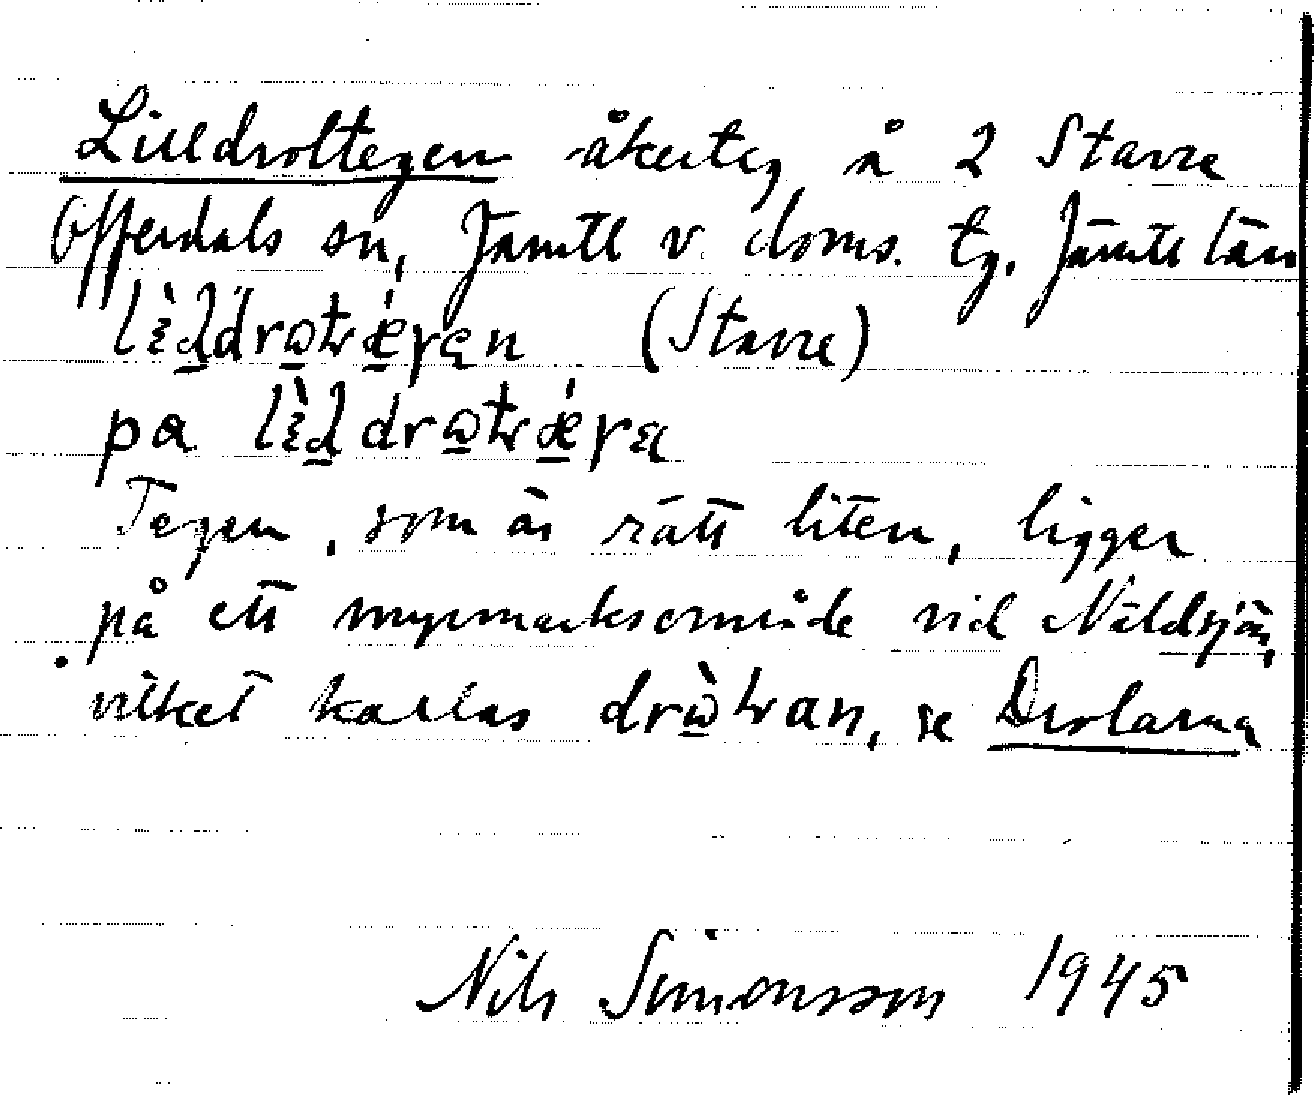 Lilldroltegen åkerteg å 2 Starre
Offerdals sn, Jämtl v. doms. tg. Jämtl län
(Starre)
pa
Tegen, som är rätt liten, ligger
på ett myrmarksområde vid Näldsjön,
vilket kallas drὼ̠ɽan, se Drolarna
Nils Simonsson 1945